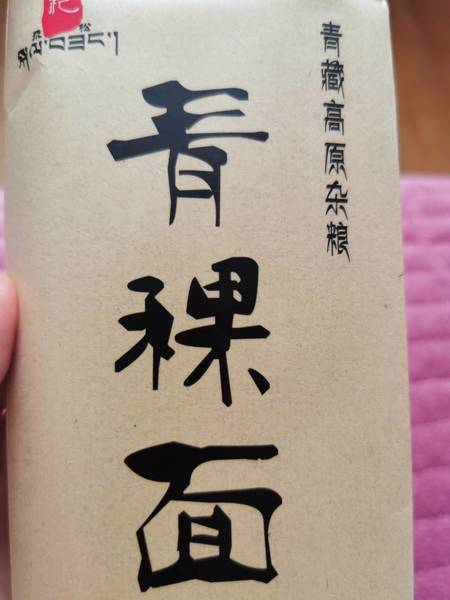 青藏高原杂粮
青稞面